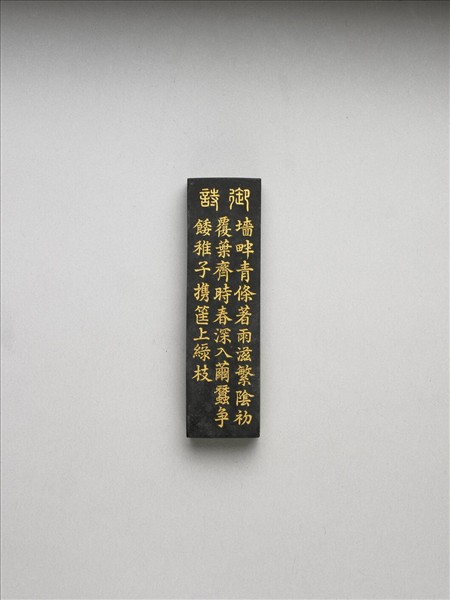 御詩
墻畔青條著雨滋繁陰初
覆葉齊時春深入繭蠶爭
餧稚子携筐上綠枝